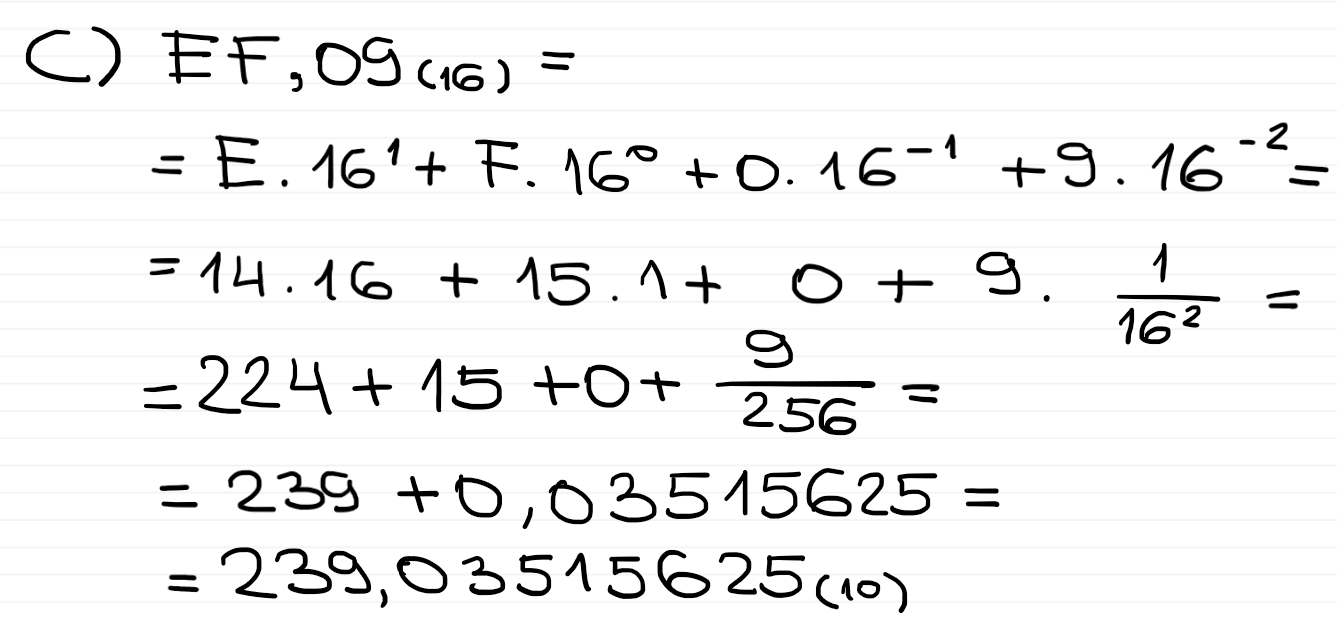 C) EF,09₍₁₆₎ =
= E . 16¹ + F . 16⁰ + 0 . 16⁻¹ + 9 . 16⁻² =
= 14 . 16 + 15 . 1 + 0 + 9 . 1/16² =
= 224 + 15 + 0 + 9/256 =
= 239 + 0,03515625 =
= 239,03515625₍₁₀₎